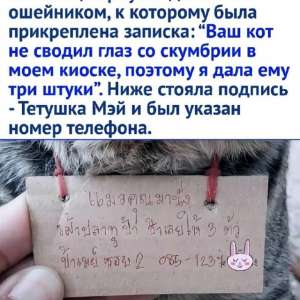 ошейником, к которому была
прикреплена записка: “Ваш кот
не сводил глаз со скумбрии в
моем киоске, поэтому я дала ему
три штуки”. Ниже стояла подпись
- Тетушка Мэй и был указан
номер телефона.
แมวคุณมานั่ง
ปลาทู ป้า ให้ 3 ตัว
ป้าเมย์ ซอย 2 085-123